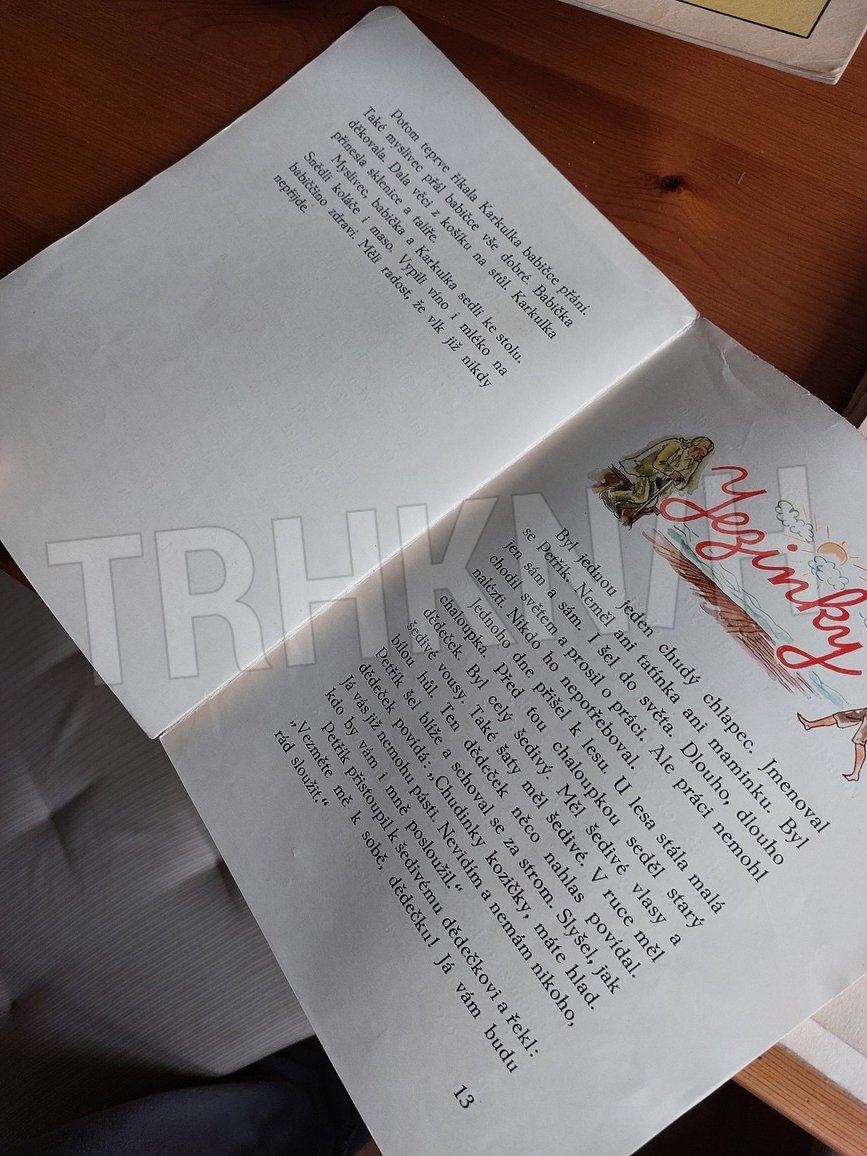 Potom teprve říkala Karkulka babičce přání.
Také myslivec přál babičce vše dobré. Babička
děkovala. Dala věci z košíku na stůl. Karkulka
přinesla sklenice a talíře.
Myslivec, babička a Karkulka sedli ke stolu.
Snědli koláče i maso. Vypili víno i mléko na
babiččino zdraví. Měli radost, že vlk již nikdy
nepřijde.
Jezinky
Byl jednou jeden chudý chlapec. Jmenoval
se Petřík. Neměl ani tatínka ani maminku. Byl
jen sám a sám. I šel do světa. Dlouho, dlouho
chodil světem a prosil o práci. Ale práci nemohl
nalézti. Nikdo ho nepotřeboval.
Jednoho dne přišel k lesu. U lesa stála malá
chaloupka. Před tou chaloupkou seděl starý
dědeček. Byl celý šedivý. Měl šedivé vlasy a
šedivé vousy. Také šaty měl šedivé. V ruce měl
bílou hůl. Ten dědeček něco nahlas povídal.
Petřík šel blíže a schoval se za strom. Slyšel, jak
dědeček povídá: „Chudinky kozičky, máte hlad.
Já vás již nemohu pásti. Nevidím a nemám nikoho,
kdo by vám i mně posloužil.“
Petřík přistoupil k šedivému dědečkovi a řekl:
„Vezměte mě k sobě, dědečku! Já vám budu
rád sloužit.“
13
TRHKNIH